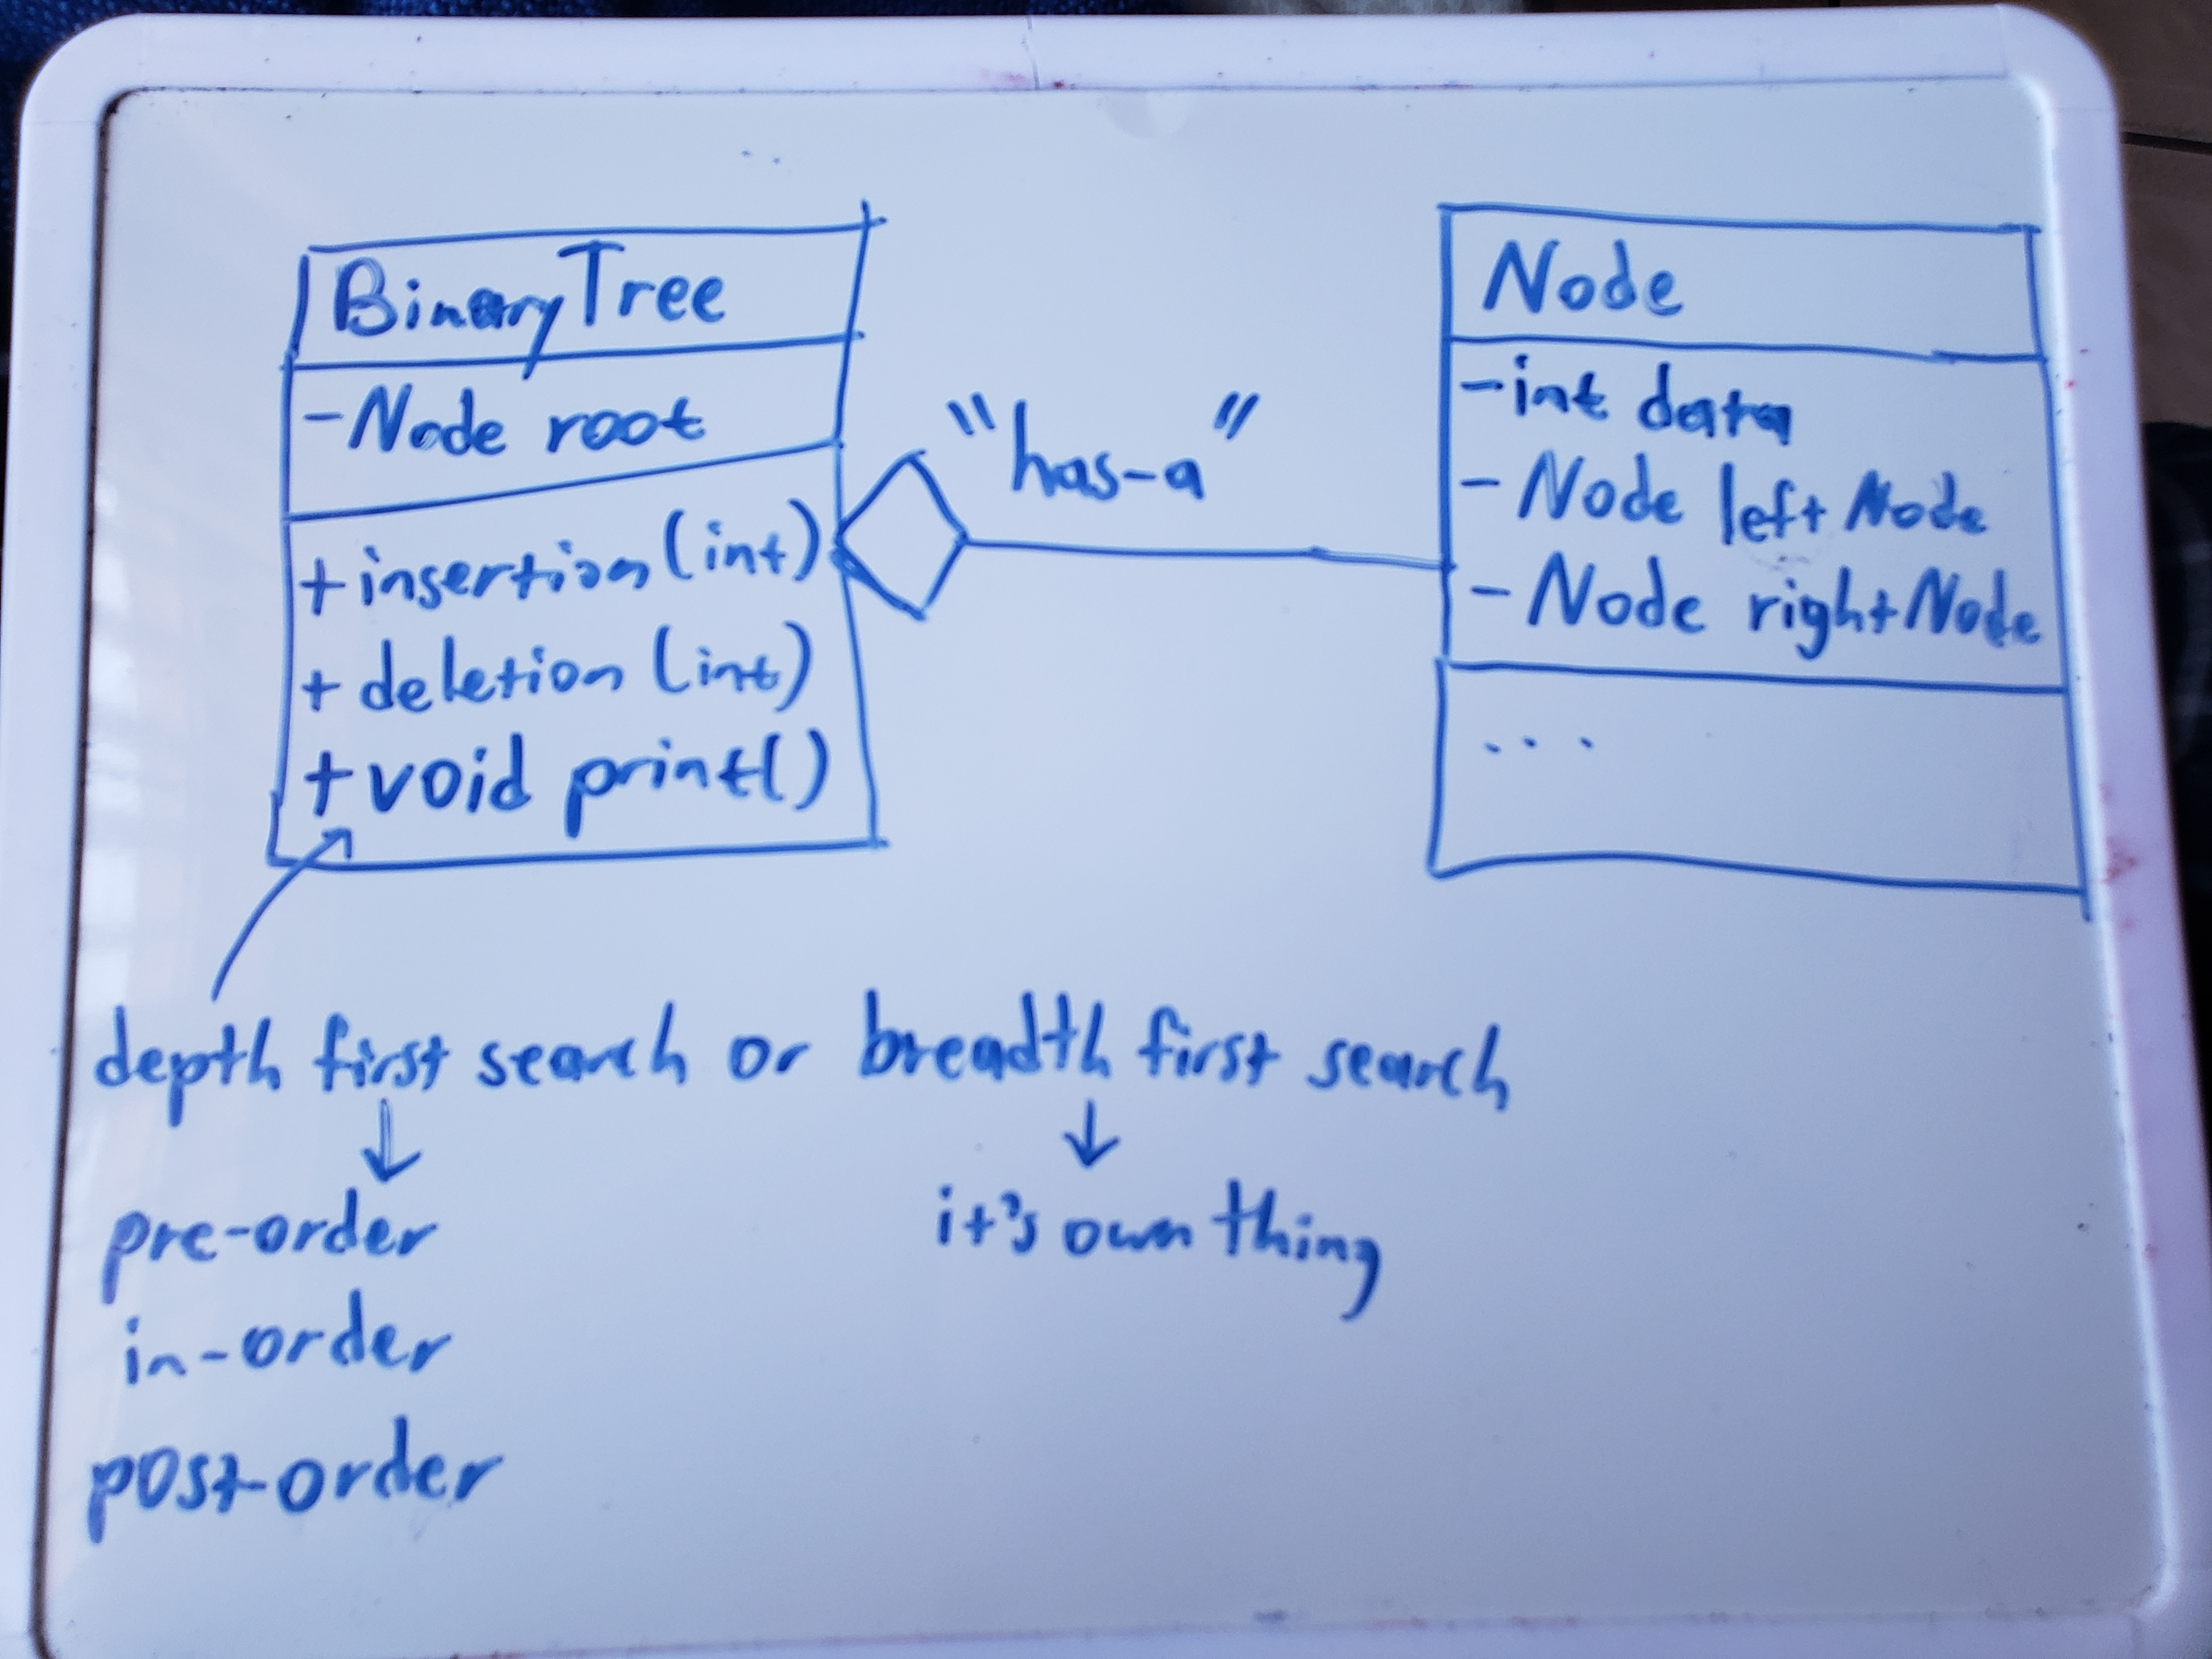 BinaryTree
- Node root
+ insertion (int)
+ deletion (int)
+ void print()
"has-a"
Node
- int data
- Node leftNode
- Node rightNode
...
depth first search or breadth first search
pre-order
in-order
post-order
it's own thing